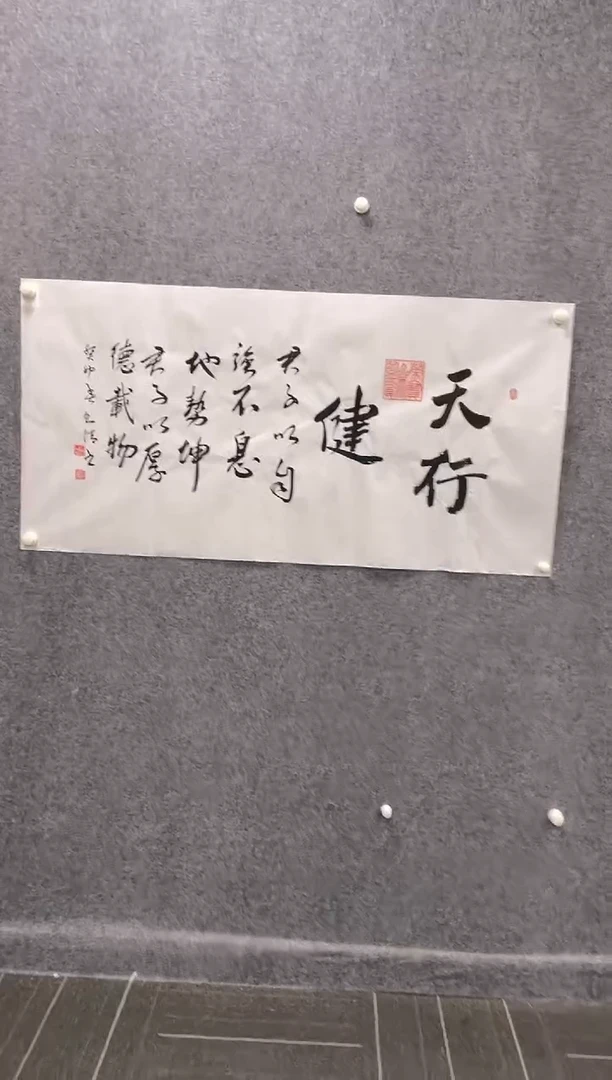 天行
健
君子以自
强不息
地势坤
君子以厚
德载物
癸卯